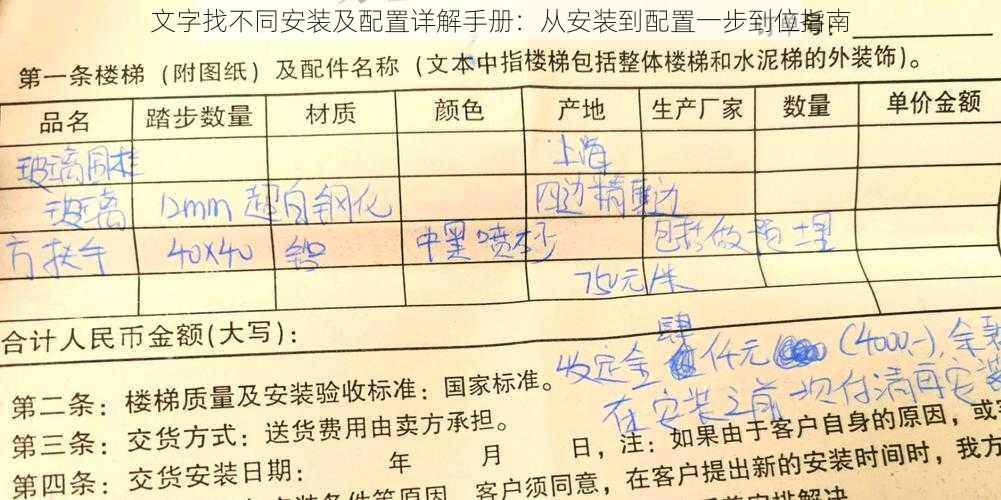 文字找不同安装及配置详解手册：从安装到配置一步到位指南
第一条楼梯（附图纸）及配件名称（文本中指楼梯包括整体楼梯和水泥梯的外装饰）。
品名 踏步数量 材质 颜色 产地 生产厂家 数量 单价金额
玻璃围栏 上海
玻璃 12mm 超白钢化 四边精磨边
方扶手 40X40 铝 中黑喷砂 包括做预埋
750元/米
合计人民币金额(大写)：
收定金肆仟元 (4000,-),余款
第二条：楼梯质量及安装验收标准：国家标准。
在安装之前一次付清再安装
第三条：交货方式：送货费用由卖方承担。
第四条：交货安装日期： 年 月 日，注：如果由于客户自身的原因，或
客户须同意，在客户提出新的安装时间时，我方